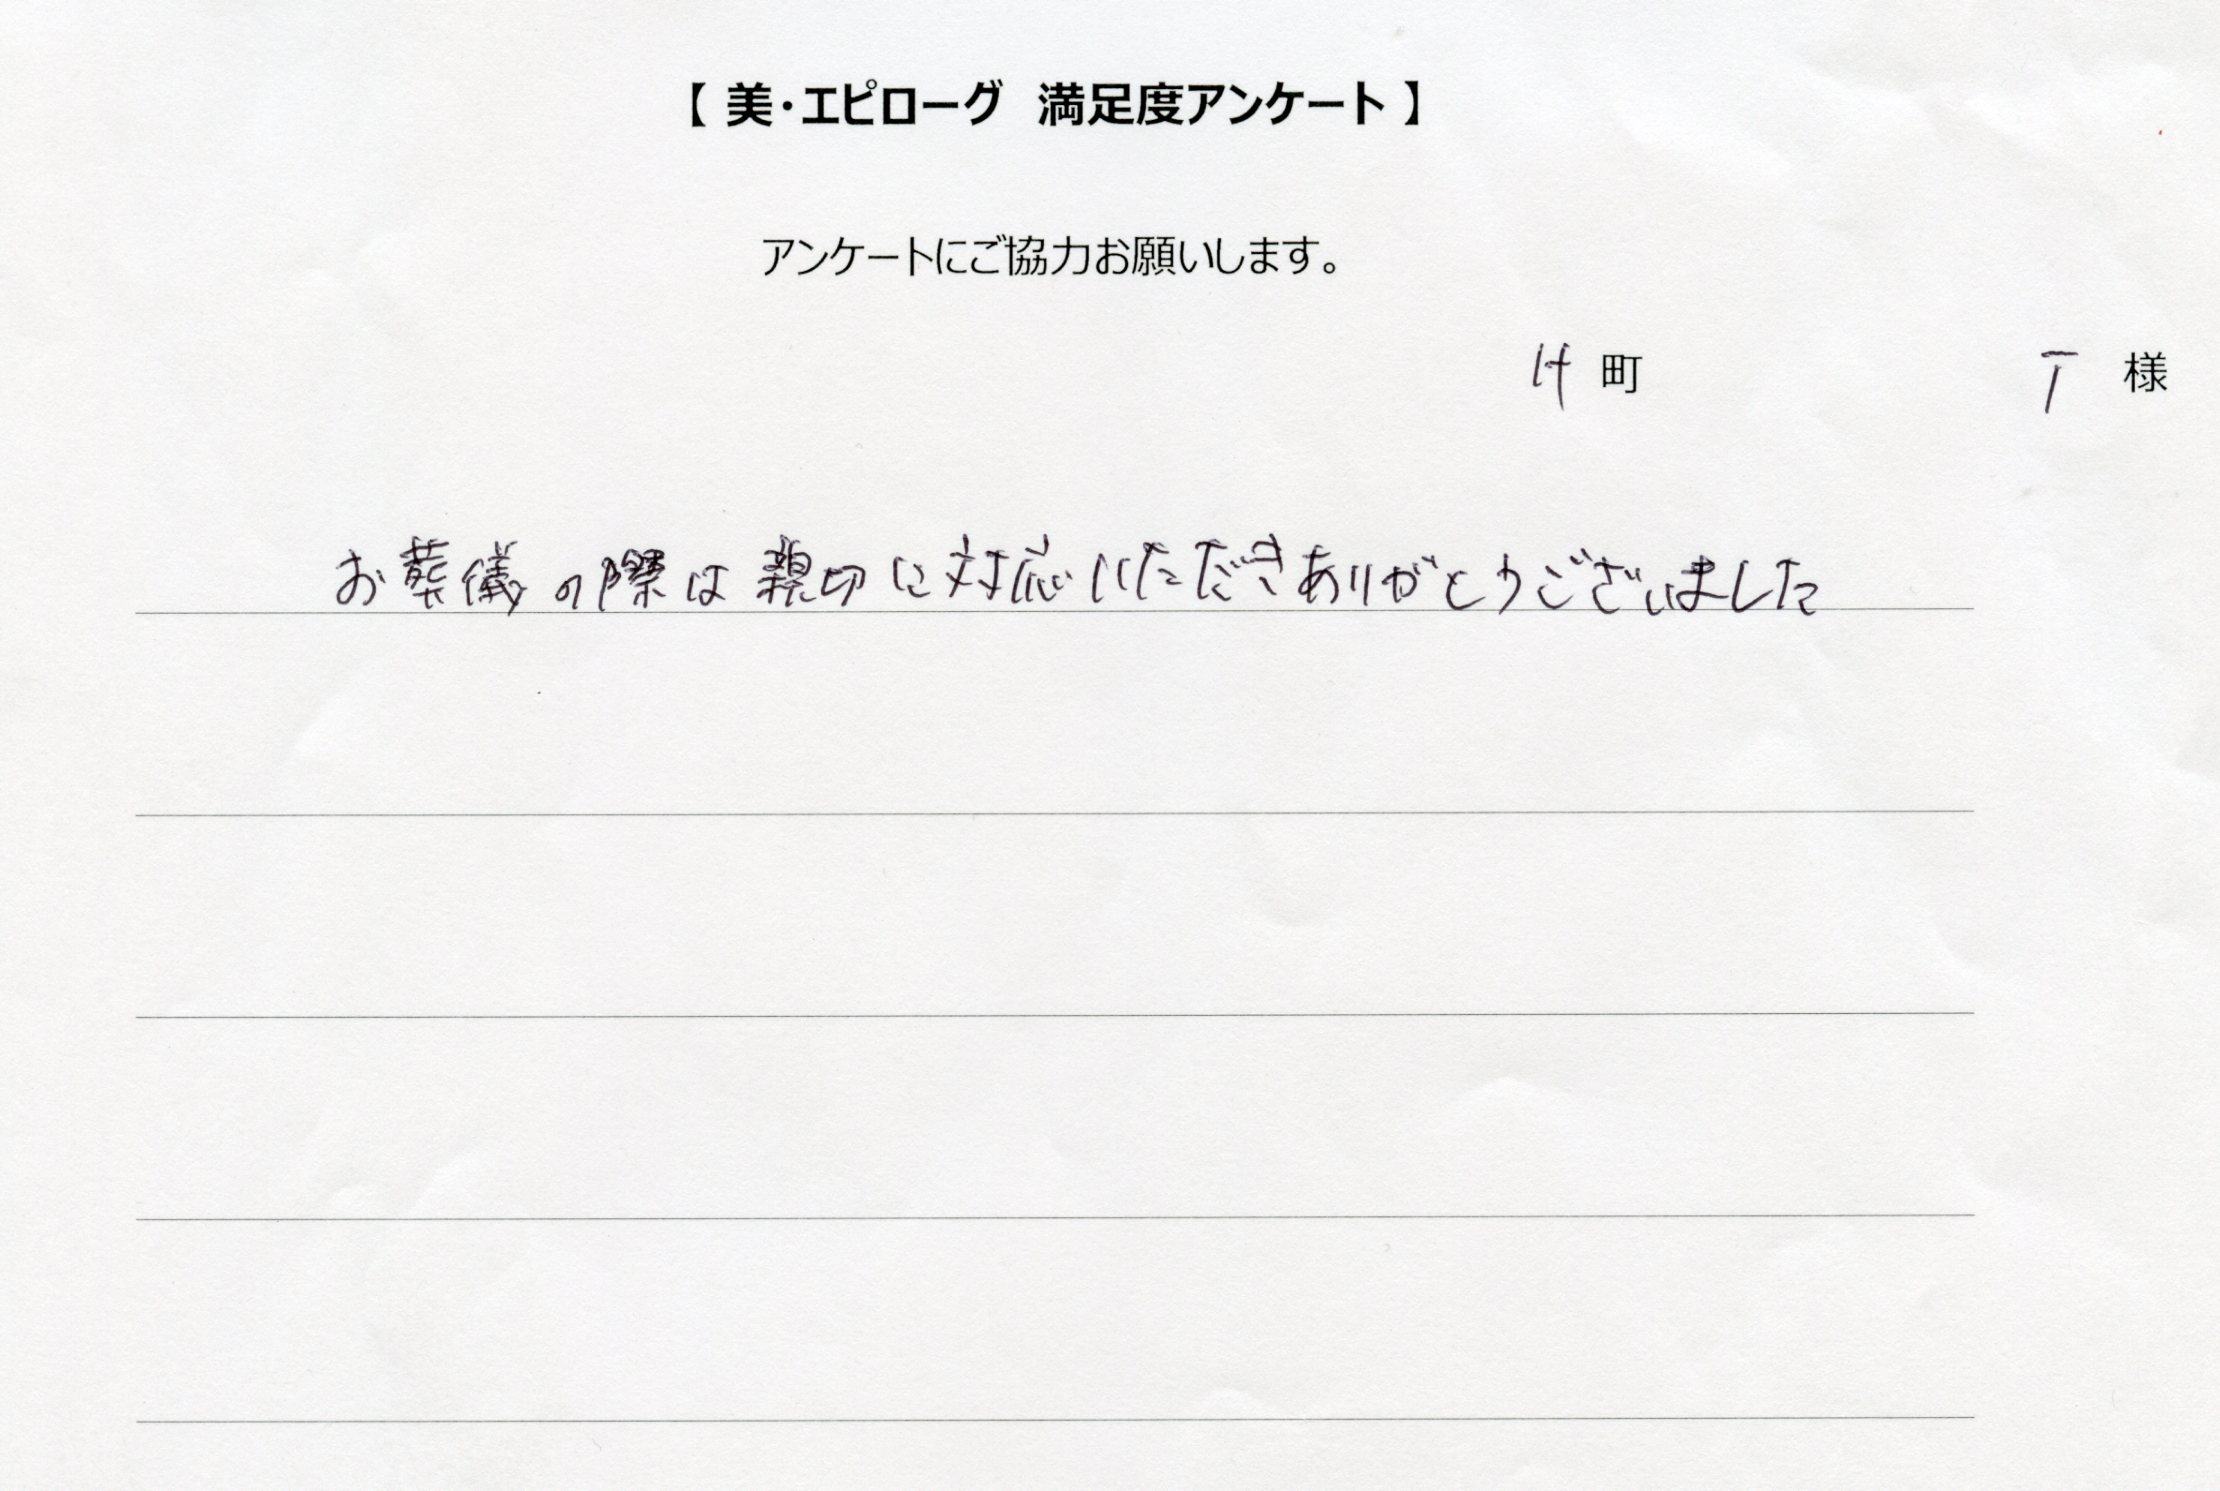 【 美・エピローグ 満足度アンケート 】
アンケートにご協力お願いします。
H 町 T 様
お葬儀の際は親切に対応いただきありがとうございました